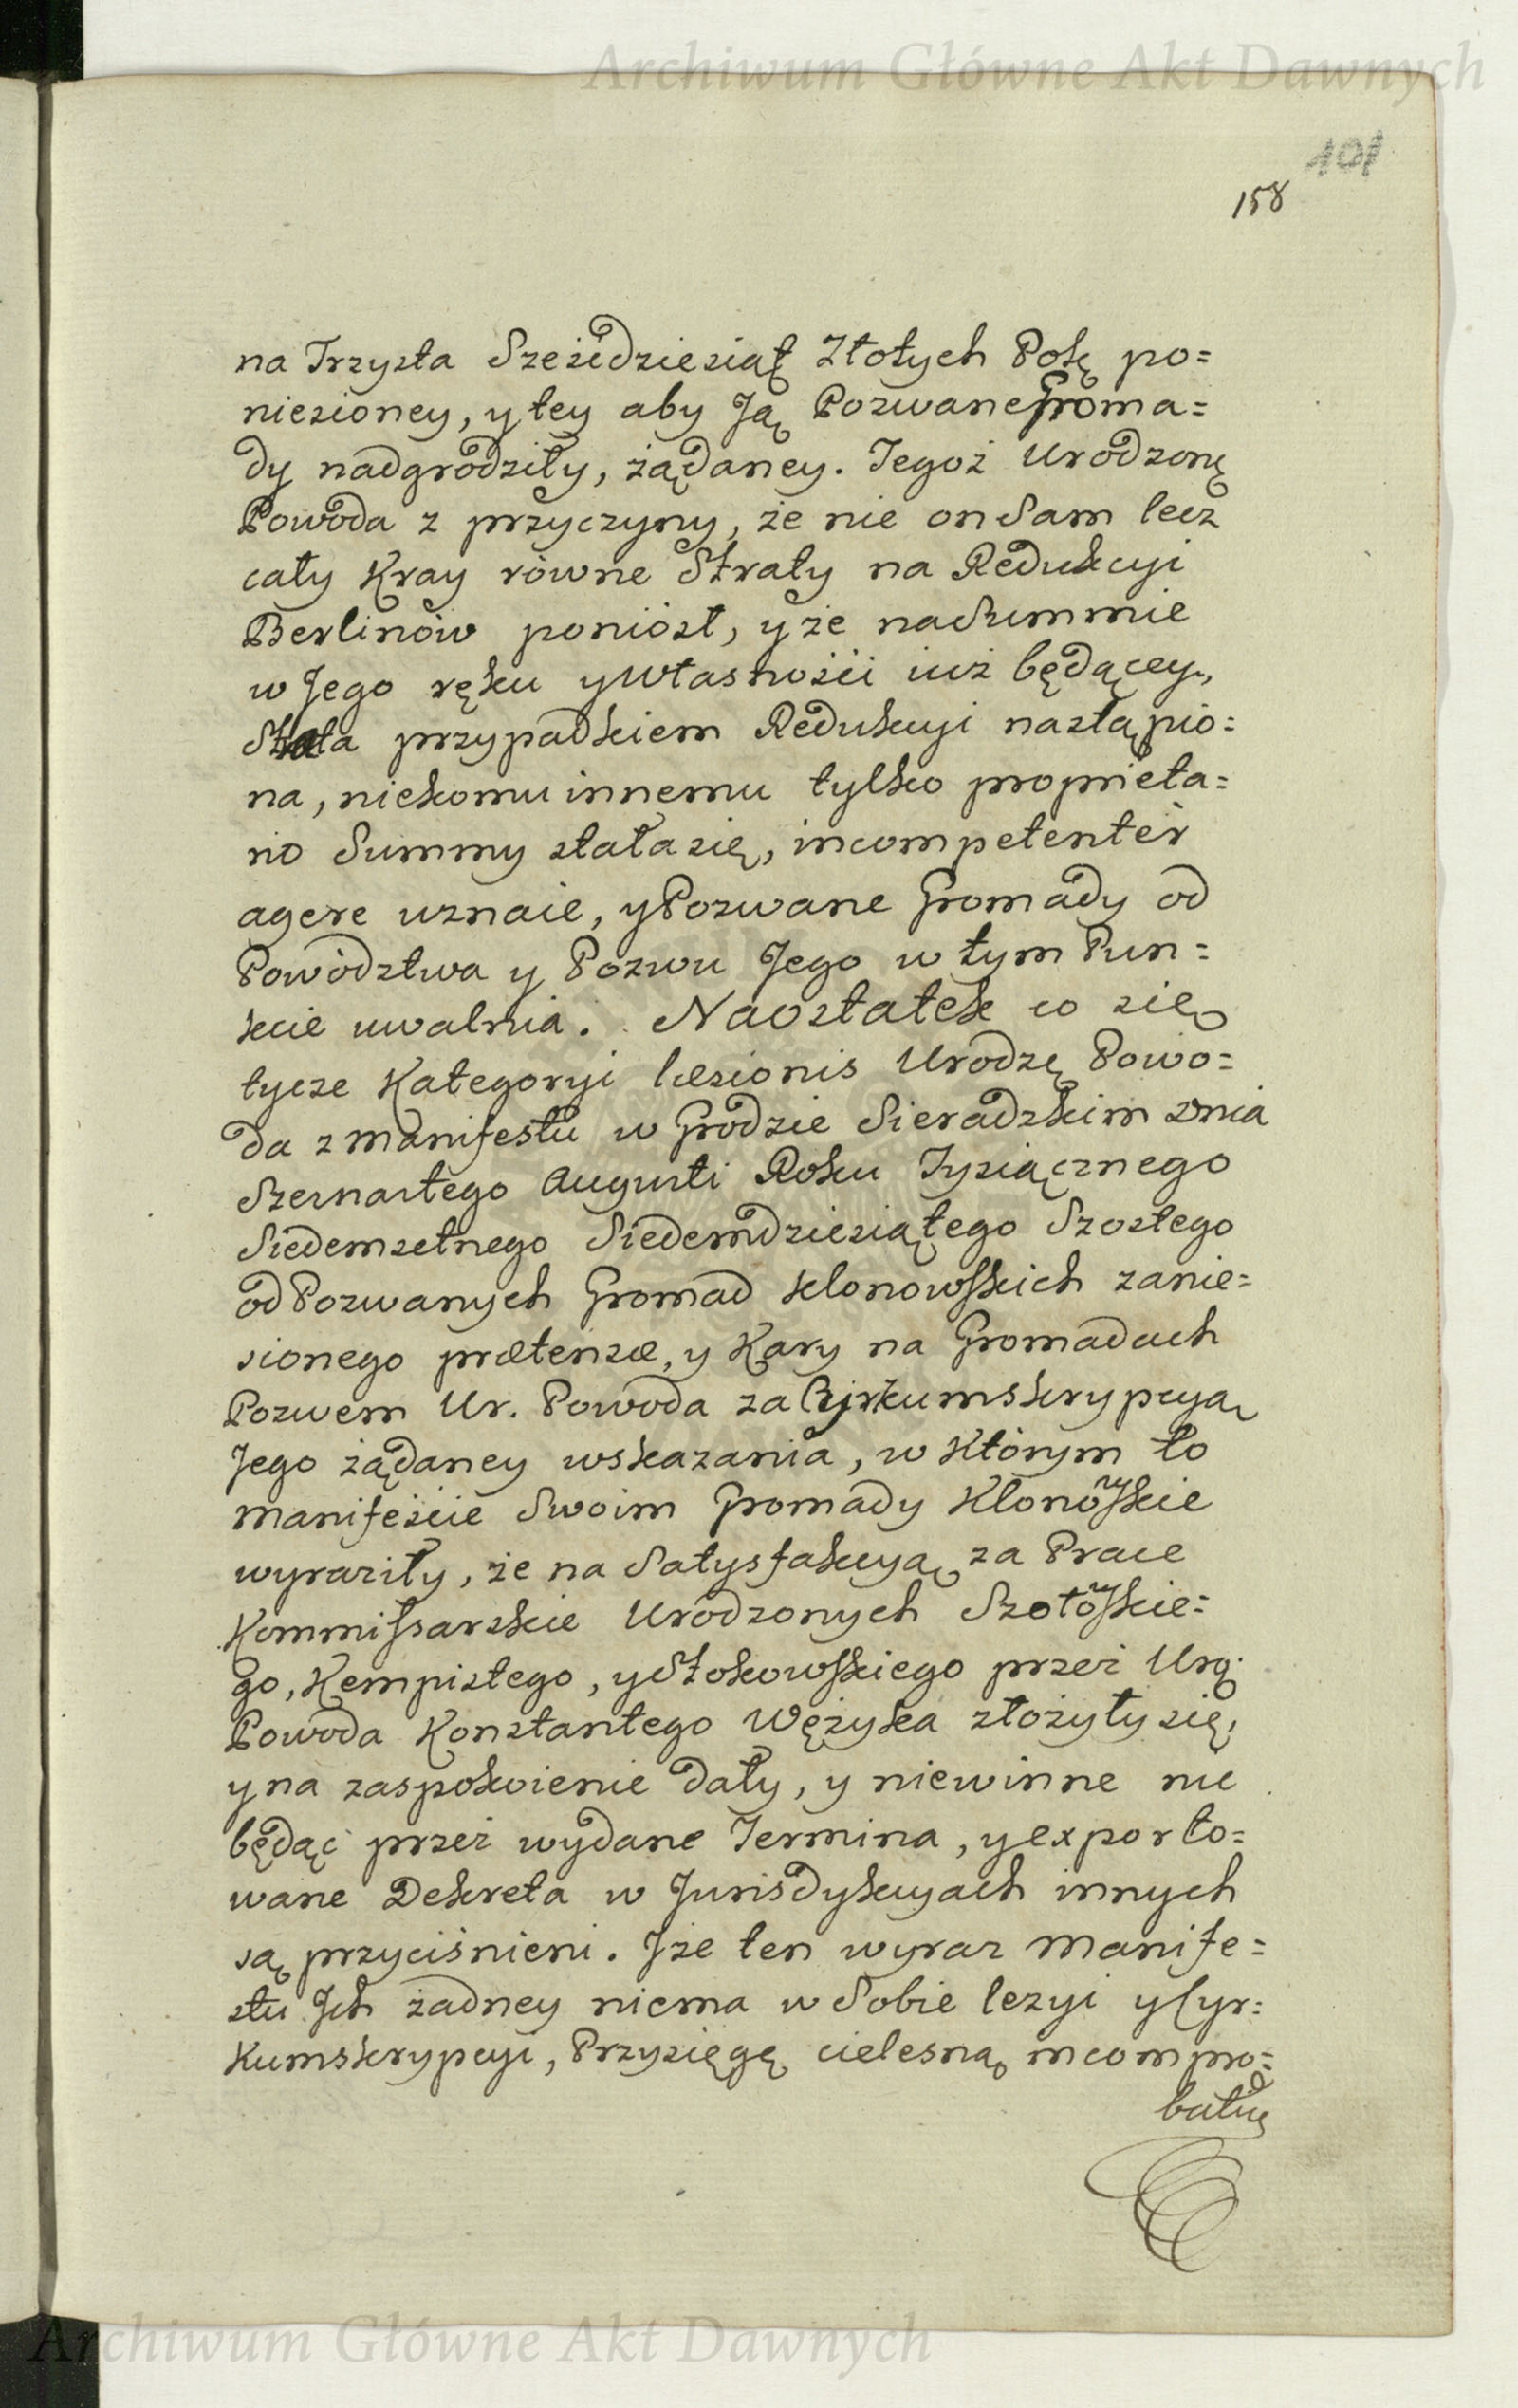 Archiwum Główne Akt Dawnych
101
158
na Trzysta Sześćdziesiąt Złotych Polę po=
niesioney, y tey aby Ją Pozwane Groma=
dy nadgrodziły, żądaney. Tegoż Urodzonę
Powoda z przyczyny, że nie on Sam lecz
cały Kray równe Straty na Redukcyi
Berlinów poniósł, y że na Summie
w Jego ręku y Własności iuż będącey,
Strata przypadkiem Redukcyi nastąpio=
na, niekomu innemu tylko proprieta=
rio Summy stała się, incompetenter
agere uznaie, y Pozwane Gromady od
Powództwa y Pozwu Jego w tym Pun=
kcie uwalnia. Naostatek co się
tycze Kategoryi læsionis Urodzę Powo=
da z manifestu w Grodzie Sieradzkim dnia
Szesnastego Augusti Roku Tysiącznego
Siedemsetnego Siedemdziesiątego Szostego
od Pozwanych Gromad klonowskich zanie=
sionego prætensæ, y Kary na Gromadach
Pozwem Ur. Powoda za Cyrkumskrypcyą
Jego żądaney wskazania, w Którym to
manifeście Swoim Gromady Klonowskie
wyraziły, że na Satysfakcyą za Prace
Kommissarskie Urodzonych Szołowskie=
go, Kempistego, y Stokowskiego przez Urg.
Powoda Konstantego Wężyka złożyły się,
y na zaspokoienie dały, y niewinne nie
będąc przez wydane Termina, y exporto=
wane Dekreta w Jurisdykcyach innych
są przyciśnieni. Jże ten wyraz manife=
stu Jch żadney niema w Sobie lezyi y Cyr=
kumskrypcyi, Przysięgę cielesną incompro=
batię
Archiwum Główne Akt Dawnych